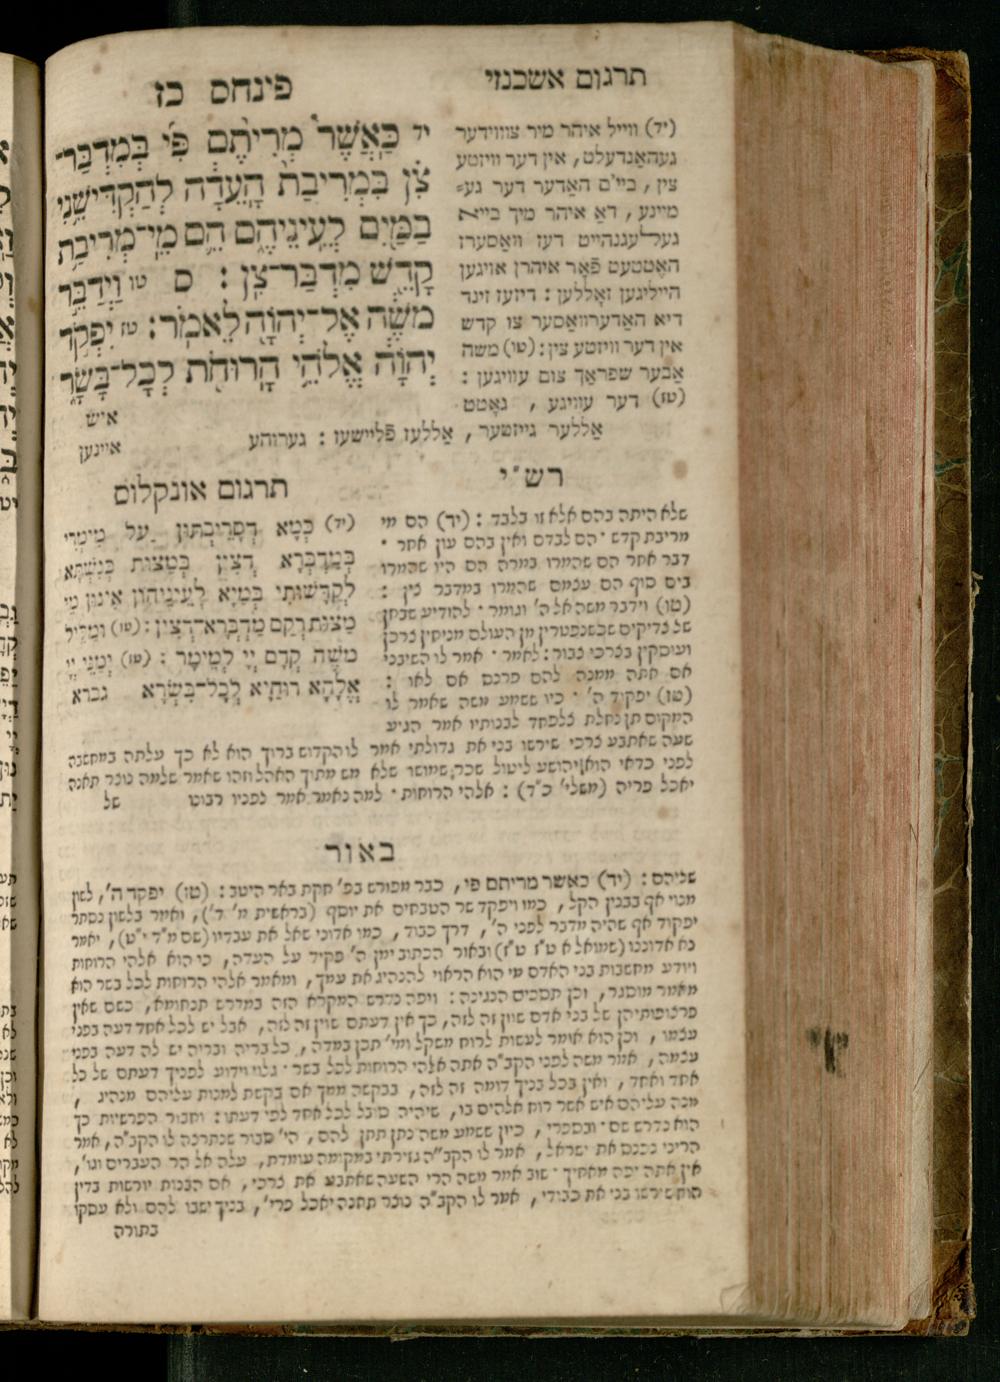 פינחס כז
יד כַּאֲשֶׁר מְרִיתֶם פִּי בְּמִדְבַּר־
צִן בִּמְרִיבַת הָעֵדָה לְהַקְדִּישֵׁנִי
בַמַּיִם לְעֵינֵיהֶם הֵם מֵי־מְרִיבַת
קָדֵשׁ מִדְבַּר־צִן : ס טו וַיְדַבֵּר
מֹשֶׁה אֶל־יְהוָֹה לֵאמֹר : טז יִפְקֹד
יְהוָֹה אֱלֹהֵי הָרוּחֹת לְכָל־בָּשָׂר
איש
תרגום אשכנזי
(יד) ווייל איהר מיר צוווידער
געהאַנדעלט, אין דער וויזטע
צין, בייים האַדער דער גע=
מיינע, דאַ איהר מיך בייא
געלעגנהייט דעז וואַסערז
האָטטעט פאָר איהרן אויגען
הייליגען זאָללען : דיזעז זינד
דיא האַדערוואַסער צו קדש
אין דער וויזטע צין : (טו) משה
אַבער שפראַך צום עוויגען :
(טז) דער עוויגע , גאָטט
אַללער גייזטער, אַללעז פלֿיישעז : גערוהע
איינען
רש"י
שלא היתה בהם אלא זו בלבד : (יד) הם מי
מריבת קדש · הם לבדם ואין בהם עון אחר ·
דבר אחר הם שהמרו במרה הם היו שהמרו
בים סוף הם עצמם שהמרו במדבר צין :
(טו) וידבר משה אל ה' וגומר · להודיע שבחן
של צדיקים שכשנפטרין מן העולם מניחין צרכן
ועוסקין בצרכי צבור : לאמר · אמר לו השיבני
אם אתה ממנה להם פרנס אם לאו :
(טז) יפקוד ה' · כיון ששמע משה שאמר לו
המקום תן נחלת צלפחד לבנותיו אמר הגיע
שעה שאתבע צרכי שירשו בני את גדולתי אמר לו הקדוש ברוך הוא לא כך עלתה במחשבה
לפני כדאי הוא יהושע ליטול שכר שמושו שלא מש מתוך האהל וזהו שאמר שלמה נוצר תאנה
יאכל פריה (משלי כ"ד) : אלהי הרוחות · למה נאמר אמר לפניו רבונו
של
תרגום אונקלוס
(יד) כְּמָא דְסָרֵיבְתּוּן עַל מֵימְרִי
בְּמַדְבְּרָא דְצִין בְּמַצּוּת כְּנִשְׁתָּא
לְקַדָּשׁוּתִי בְּמַיָּא לְעֵינֵיהוֹן אִינוּן מֵי
מַצּוּת רְקַם מַדְבְּרָא־דְצִין : (טו) וּמַלִּיל
משֶׁה קֳדָם יְיָ לְמֵימָר : (טז) יְמַנֵּי יְיָ
אֱלָהָא רוּחַיָּא לְכָל־בִּשְׂרָא
גברא
באור
שליהם : (יד) כאשר מריתם פי, כבר מפורש בפ' חקת באר היטב : (טז) יפקד ה', לשון
מנוי אף בבנין הקל, כמו ויפקד שר הטבחים את יוסף (בראשית מ' ד'), ואמר בלשון נסתר
יפקוד אף שהיה מדבר לפני ה', דרך כבוד, כמו אדוני שאל את עבדיו (שם מ"ד י"ט), יאמר
נא אדוננו (שמואל א ט"ז ט"ז) ובאור הכתוב ימן ה' פקיד על העדה, כי הוא אלהי הרוחות
ויודע מחשבות בני האדם מי הוא הראוי להנהיג את עמך, ומאמר אלהי הרוחות לכל בשר הוא
מאמר מוסגר, וכן תסכים הנגינה : ויפה נדרש המקרא הזה במדרש תנחומא, כשם שאין
פרצופותיהן של בני אדם שוין זה לזה, כך אין דעתם שוין זה לזה, אבל יש לכל אחד דעה בפני
עצמו, וכן הוא אומר לעשות לרוח משקל ומי' תכן במדה, כל בריה ובריה יש לה דעה בפני
עצמה, אמר משה לפני הקב"ה אתה אלהי הרוחות לכל בשר · גלוי וידוע לפניך דעתם של כל
אחד ואחד, ואין בכל בניך דומה זה לזה, בבקשה ממך אם בקשת למנות עליהם מנהיג ,
מנה עליהם איש אשר רוח אלהים בו, שיהיה סובל לכל אחד לפי דעתו : וחבור הפרשיות כך
הוא נדרש שם · ובספרי, כיון ששמע משה נתן תתן להם, הי' סבור שנתרצה לו הקב"ה, אמר
הריני נכנס את ישראל, אמר לו הקב"ה גזירתי במקומה עומדת, עלה אל הר העברים וגו',
אין אתה יפה מאחיך · שוב אמר משה הרי השעה שאתבע את צרכי, אם הבנות יורשות בדין
הוא שירשו בני את כבודי, אמר לו הקב"ה נוצר תאנה יאכל פרי', בניך ישבו להם ולא עסקו
בתורה